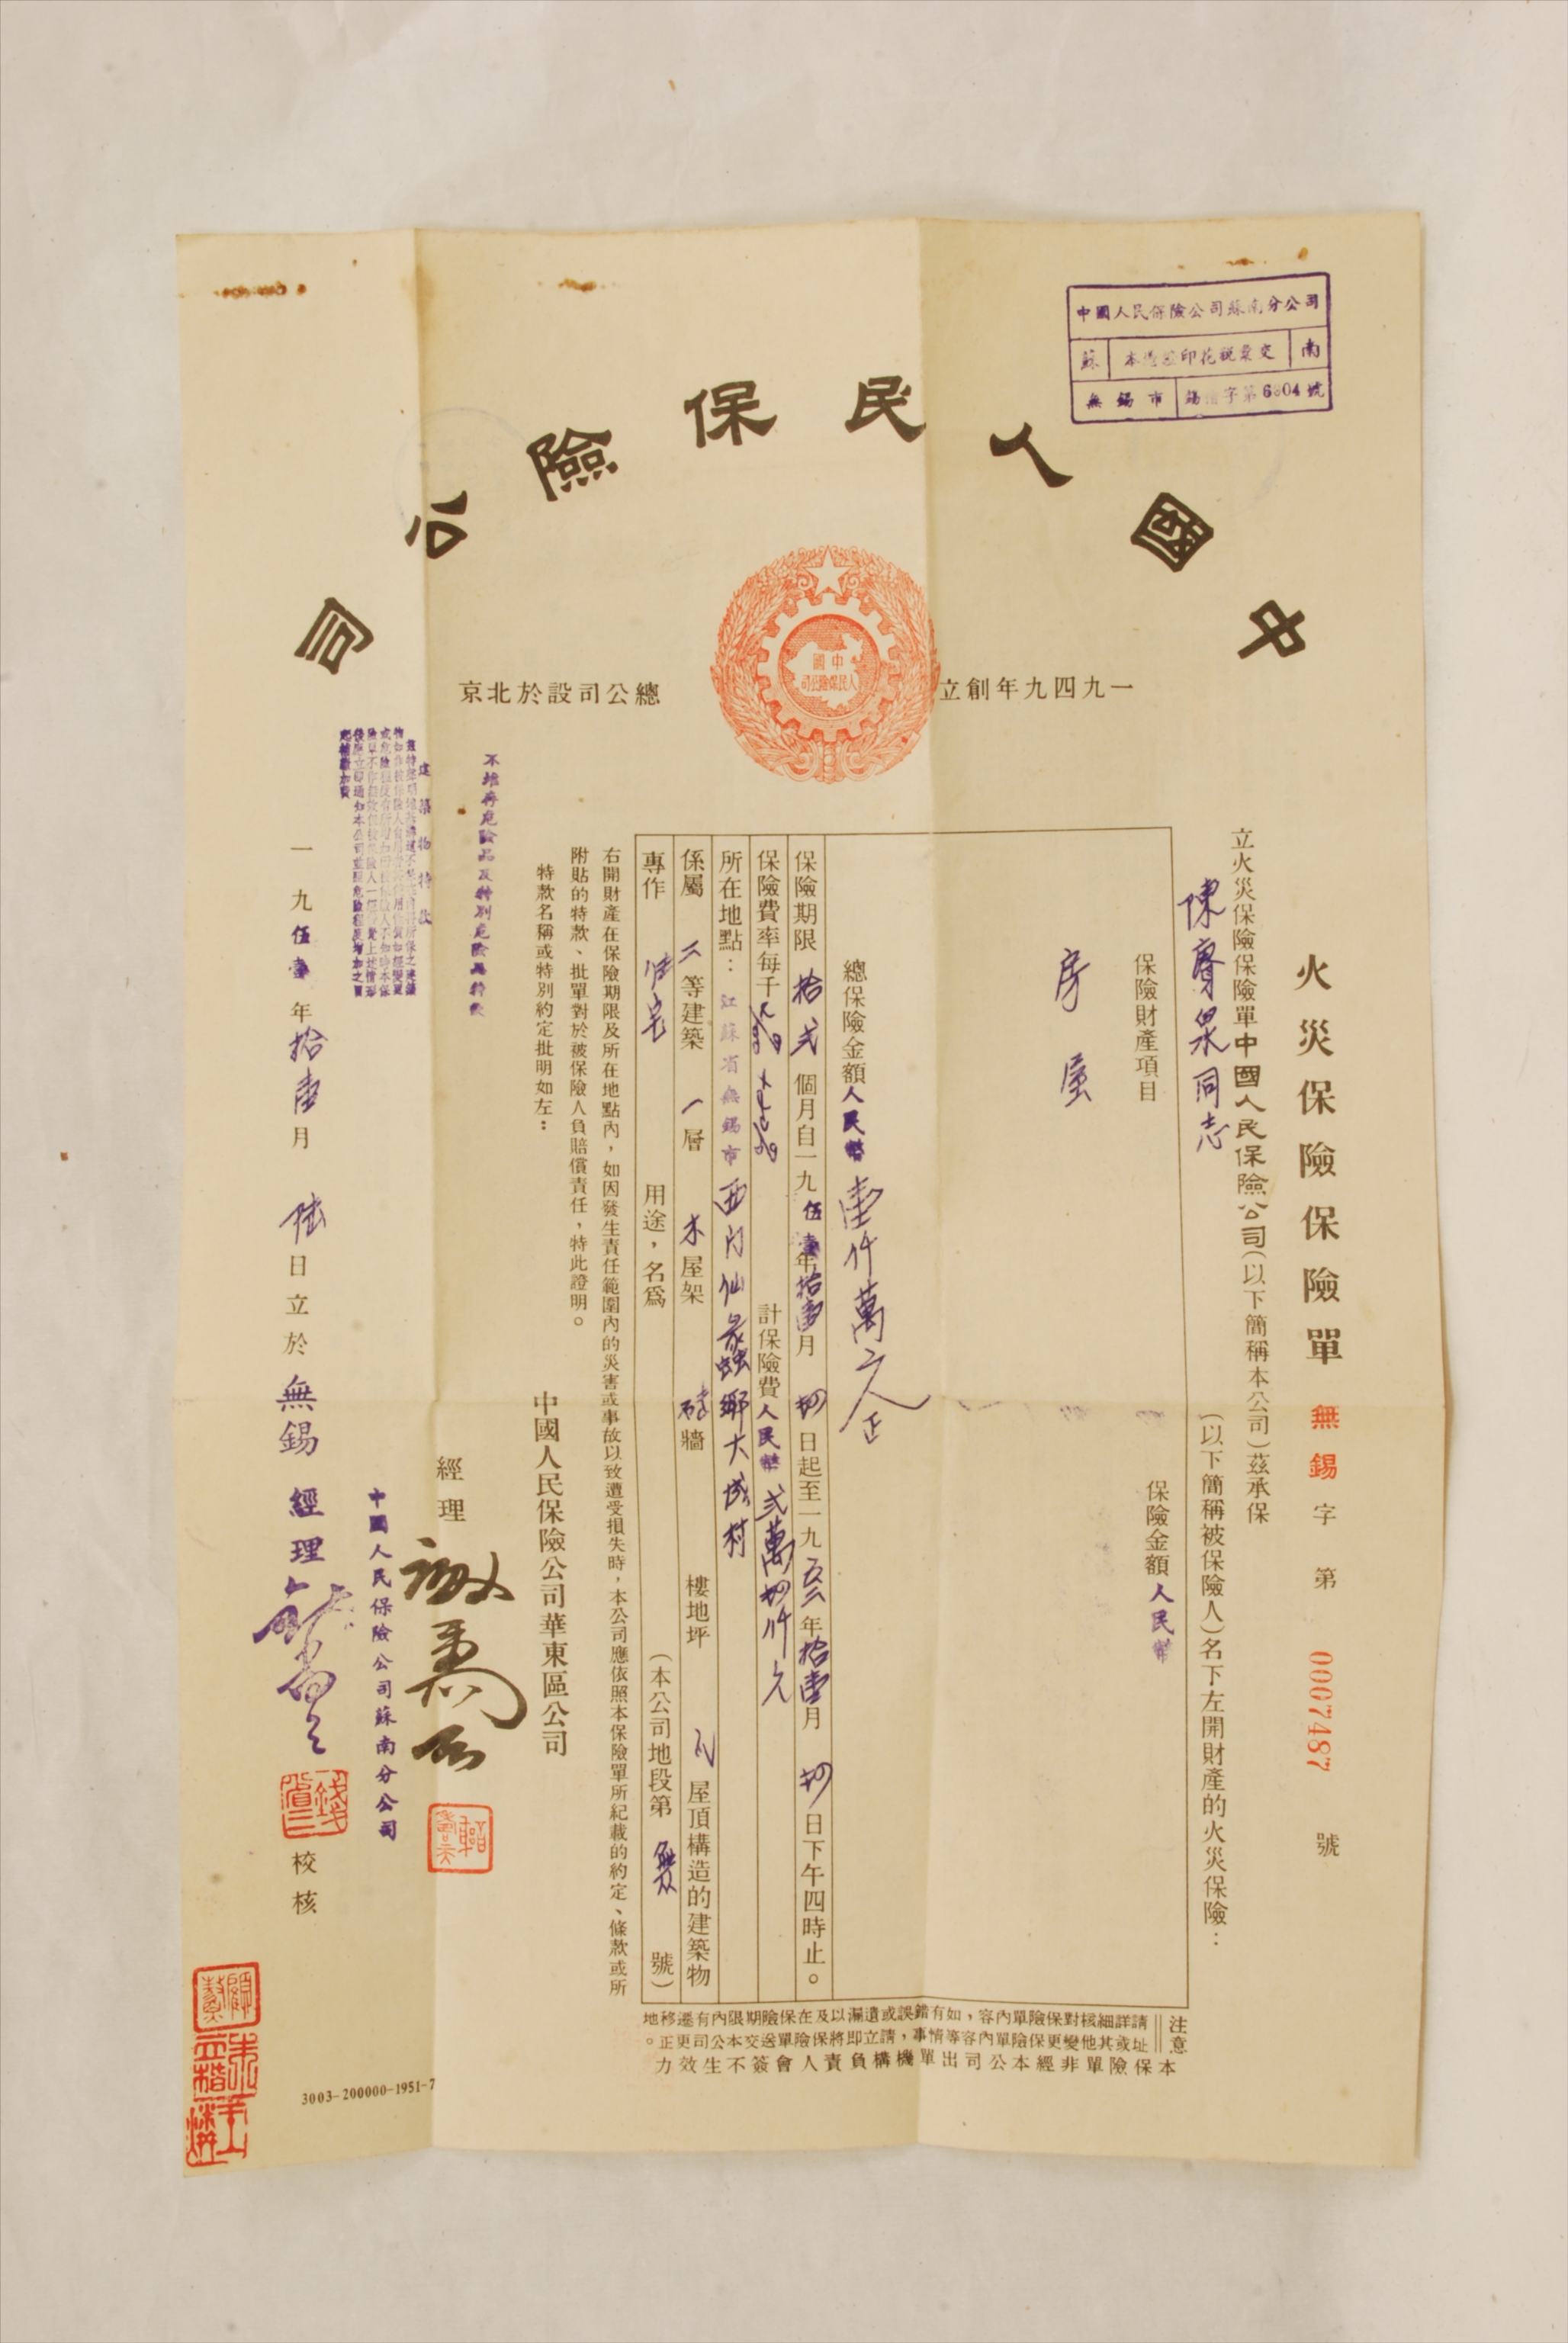 中國人民保險公司蘇南分公司
蘇
印花稅彙交
南
無錫市
錫 字第6804號
中國人民保險公司
一九四九年創立
中國
人民保險公司
總公司設於北京
火災保險保險單 無錫字第 0007487 號
立火災保險保險單中國人民保險公司(以下簡稱本公司)茲承保
陳 泉同志 (以下簡稱被保險人)名下左開財產的火災保險:
保險財產項目 保險金額 人民幣
房屋
總保險金額 人民幣 壹仟萬元正
保險期限 拾弍 個月自一九伍壹年拾壹月 初 日起至一九五二年拾壹月 初 日下午四時止。
保險費率每千 計保險費 人民幣 弍萬 仟元
所在地點: 江蘇省無錫市 西門仙蠡鄉大成村
係屬 二 等建築 一 層 木 屋架 磚 牆 樓地坪 瓦 屋頂構造的建築物
專作 住宅 用途,名爲 (本公司地段第 號)
右開財產在保險期限及所在地點內,如因發生責任範圍內的災害或事故以致遭受損失時,本公司應依照本保險單所紀載的約定、條款或所
附貼的特款、批單對於被保險人負賠償責任,特此證明。
特款名稱或特別約定批明如左:
中國人民保險公司華東區公司
不堆存危險品及特別危險品特款
經理
建築物特款
中國人民保險公司蘇南分公司
一九伍壹年拾壹月 陸 日立於 無錫 經理 校核
注意
請詳細核對保險單內容,如有錯誤或遺漏以及在保險期限內有遷移地
址或其他變更保險單內容等情事,請立即將保險單送交本公司更正。
本保險單非經本公司出單機構負責人會簽不生效力
3003-200000-1951-7